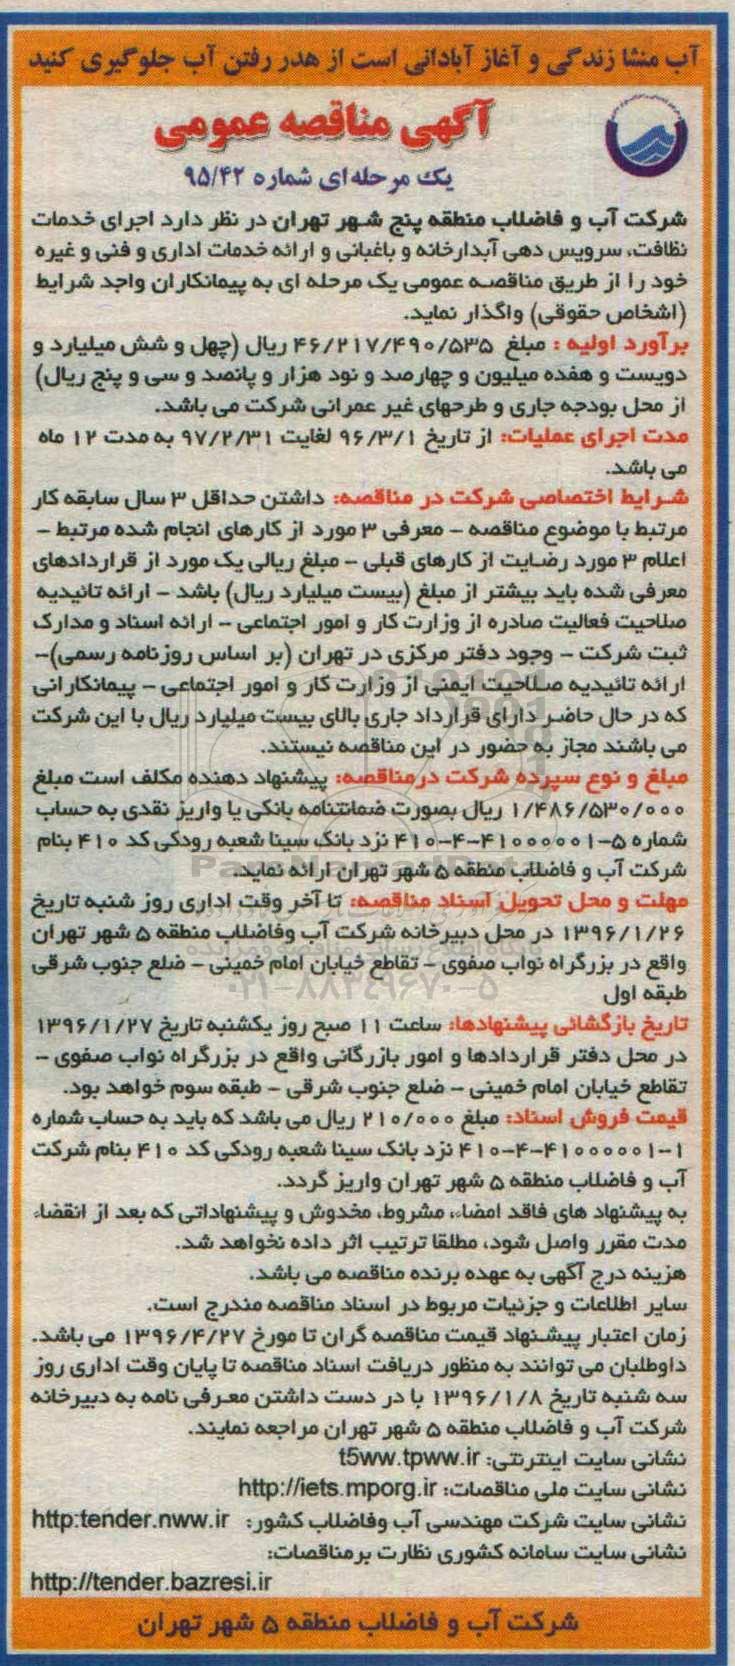 آب منشا زندگی و آغاز آبادانی است از هدر رفتن آب جلوگیری کنید
آگهی مناقصه عمومی
یک مرحله‌ای شماره ۹۵/۴۲
شرکت آب و فاضلاب منطقه پنج شهر تهران در نظر دارد اجرای خدمات
نظافت، سرویس دهی آبدارخانه و باغبانی و ارائه خدمات اداری و فنی و غیره
خود را از طریق مناقصه عمومی یک مرحله ای به پیمانکاران واجد شرایط
(اشخاص حقوقی) واگذار نماید.
برآورد اولیه : مبلغ ۴۶/۲۱۷/۴۹۰/۵۳۵ ریال (چهل و شش میلیارد و
دویست و هفده میلیون و چهارصد و نود هزار و پانصد و سی و پنج ریال)
از محل بودجه جاری و طرحهای غیر عمرانی شرکت می باشد.
مدت اجرای عملیات: از تاریخ ۹۶/۳/۱ لغایت ۹۷/۲/۳۱ به مدت ۱۲ ماه
می باشد.
شرایط اختصاصی شرکت در مناقصه: داشتن حداقل ۳ سال سابقه کار
مرتبط با موضوع مناقصه – معرفی ۳ مورد از کارهای انجام شده مرتبط –
اعلام ۳ مورد رضایت از کارهای قبلی – مبلغ ریالی یک مورد از قراردادهای
معرفی شده باید بیشتر از مبلغ (بیست میلیارد ریال) باشد – ارائه تائیدیه
صلاحیت فعالیت صادره از وزارت کار و امور اجتماعی – ارائه اسناد و مدارک
ثبت شرکت – وجود دفتر مرکزی در تهران (بر اساس روزنامه رسمی)–
ارائه تائیدیه صلاحیت ایمنی از وزارت کار و امور اجتماعی – پیمانکارانی
که در حال حاضر دارای قرارداد جاری بالای بیست میلیارد ریال با این شرکت
می باشند مجاز به حضور در این مناقصه نیستند.
مبلغ و نوع سپرده شرکت درمناقصه: پیشنهاد دهنده مکلف است مبلغ
۱/۴۸۶/۵۳۰/۰۰۰ ریال بصورت ضمانتنامه بانکی یا واریز نقدی به حساب
شماره ۵-۴۱۰۰۰۰۰۱-۴-۴۱۰ نزد بانک سینا شعبه رودکی کد ۴۱۰ بنام
شرکت آب و فاضلاب منطقه ۵ شهر تهران ارائه نماید.
مهلت و محل تحویل اسناد مناقصه: تا آخر وقت اداری روز شنبه تاریخ
۱۳۹۶/۱/۲۶ در محل دبیرخانه شرکت آب وفاضلاب منطقه ۵ شهر تهران
واقع در بزرگراه نواب صفوی – تقاطع خیابان امام خمینی – ضلع جنوب شرقی
۰۲۱-۸۸۳۴۹۶۷۰-۵
طبقه اول
تاریخ بازگشائی پیشنهادها: ساعت ۱۱ صبح روز یکشنبه تاریخ ۱۳۹۶/۱/۲۷
در محل دفتر قراردادها و امور بازرگانی واقع در بزرگراه نواب صفوی –
تقاطع خیابان امام خمینی – ضلع جنوب شرقی – طبقه سوم خواهد بود.
قیمت فروش اسناد: مبلغ ۲۱۰/۰۰۰ ریال می باشد که باید به حساب شماره
۱-۴۱۰۰۰۰۰۱-۴-۴۱۰ نزد بانک سینا شعبه رودکی کد ۴۱۰ بنام شرکت
آب و فاضلاب منطقه ۵ شهر تهران واریز گردد.
به پیشنهاد های فاقد امضاء، مشروط، مخدوش و پیشنهاداتی که بعد از انقضاء
مدت مقرر واصل شود، مطلقا ترتیب اثر داده نخواهد شد.
هزینه درج آگهی به عهده برنده مناقصه می باشد.
سایر اطلاعات و جزئیات مربوط در اسناد مناقصه مندرج است.
زمان اعتبار پیشنهاد قیمت مناقصه گران تا مورخ ۱۳۹۶/۴/۲۷ می باشد.
داوطلبان می توانند به منظور دریافت اسناد مناقصه تا پایان وقت اداری روز
سه شنبه تاریخ ۱۳۹۶/۱/۸ با در دست داشتن معرفی نامه به دبیرخانه
شرکت آب و فاضلاب منطقه ۵ شهر تهران مراجعه نمایند.
نشانی سایت اینترنتی: t5ww.tpww.ir
نشانی سایت ملی مناقصات: http://iets.mporg.ir
نشانی سایت شرکت مهندسی آب وفاضلاب کشور: http:tender.nww.ir
نشانی سایت سامانه کشوری نظارت برمناقصات:
http://tender.bazresi.ir
شرکت آب و فاضلاب منطقه ۵ شهر تهران